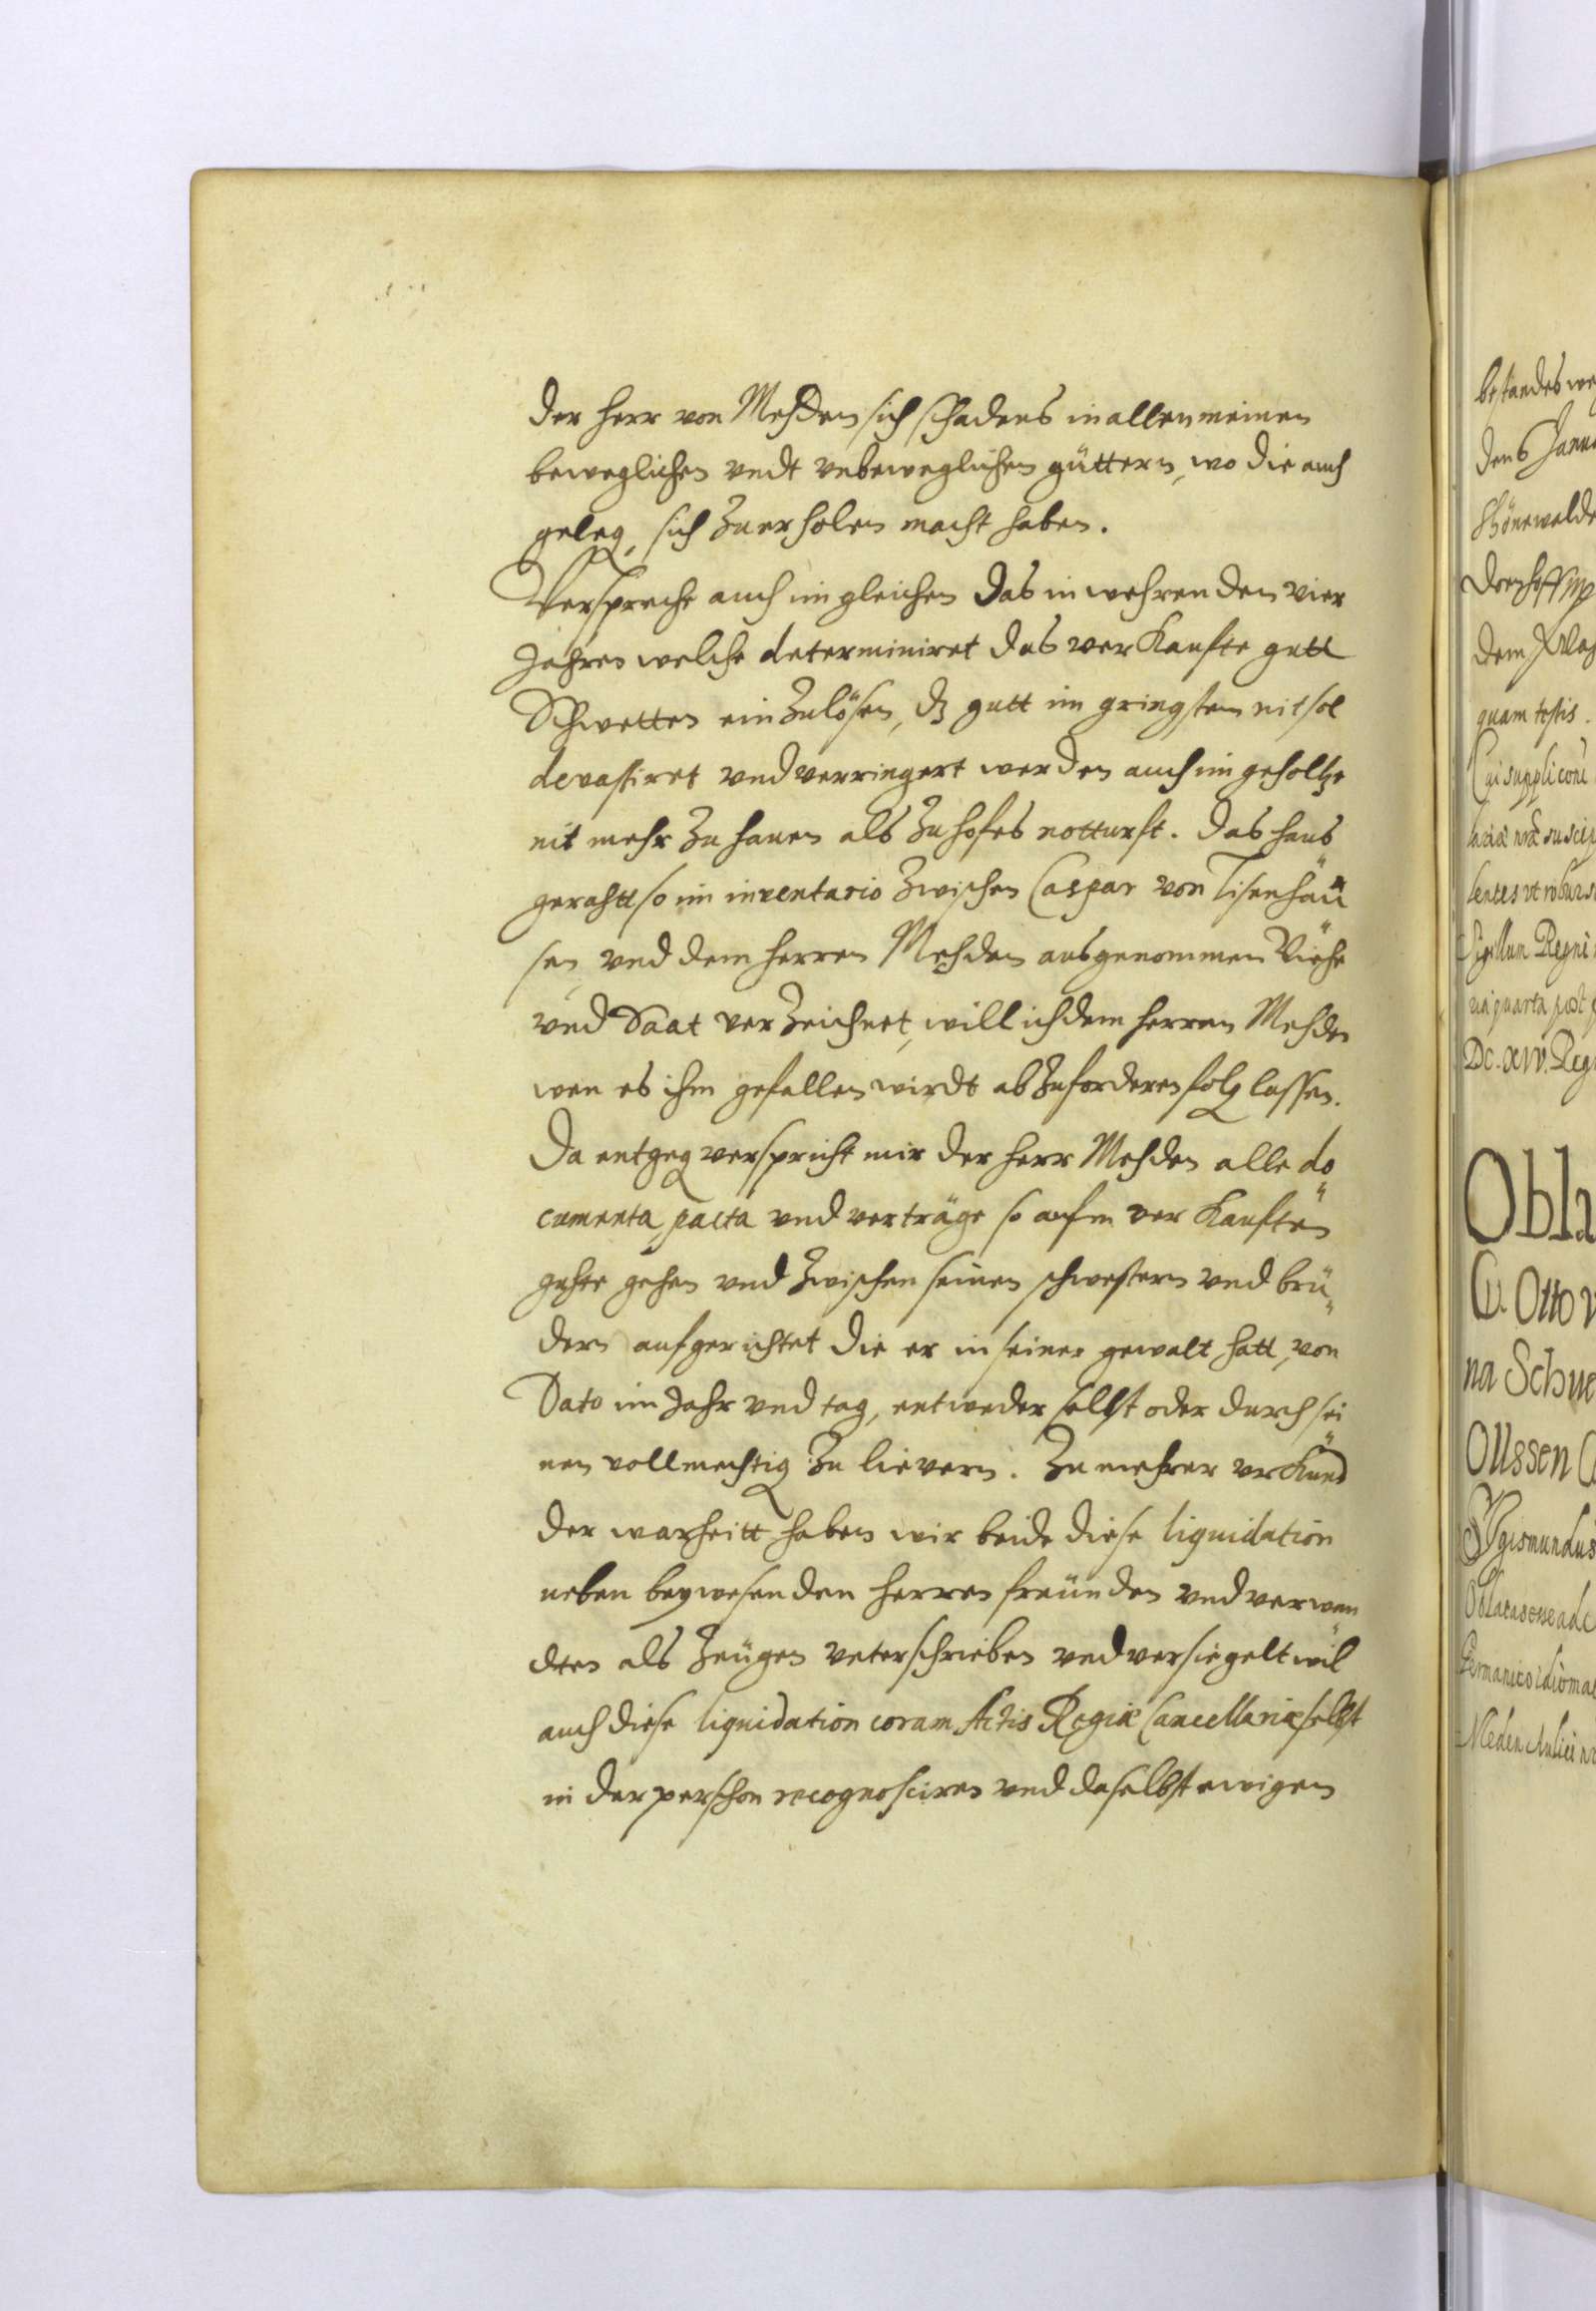 der herr von Mehden sich schadens in allen meinen
beweglichen vndt vnbeweglichen güttern, wo die auch
geleg, sich zuerholen macht haben.
Verspreche auch im gleichen das in wehrenden vier
Jahren welche determiniret das verkaufte gutt
Schwetten einzulösen, dz gutt im gringsten nit sol
devastiret vnd verringert werden auch im geholtze
nit mehr zu hauen als zu hofes notturft. das haus
gerahtt so im inventario zwischen Caspar von Tisenhau
sen vnd dem herren Mehden ausgenommen Viehe
vnd Saat verzeichnet, will ich dem herren Mehden
wen es ihm gefallen wirdt abzuforderen folg lassen.
Da entgeg verspricht mir der herr Mehden alle do
cumenta, pacta vnd verträge so aufm verkauften
guhte gehen vnd zwischen seinen schwestern vnd brü
dern aufgerichtet die er in seiner gewalt hatt, von
Dato im Jahr vnd tag, entweder selbst oder durch sei
nen vollmechtig zu lievern. Zu mehrer vrkund
der warheitt haben wir beide diese liquidation
neben beywesenden herren freunden vnd verwan
dten als zeugen vnterschrieben vnd versiegelt wil
auch diese liquidation coram Actis Regiæ Cancellariæ selbst
in der perschon recognosciren vnd daselbst ewigen
bestandes
Schönewalde
dem
quam testis.
Cui suppliconi
Sigillum Regni
quarta post
DC. XIV. Reg
Obla
G. Otto v
na Schue
Ollssen
Sygismundus
Germanico idiomat
Meden Aulici